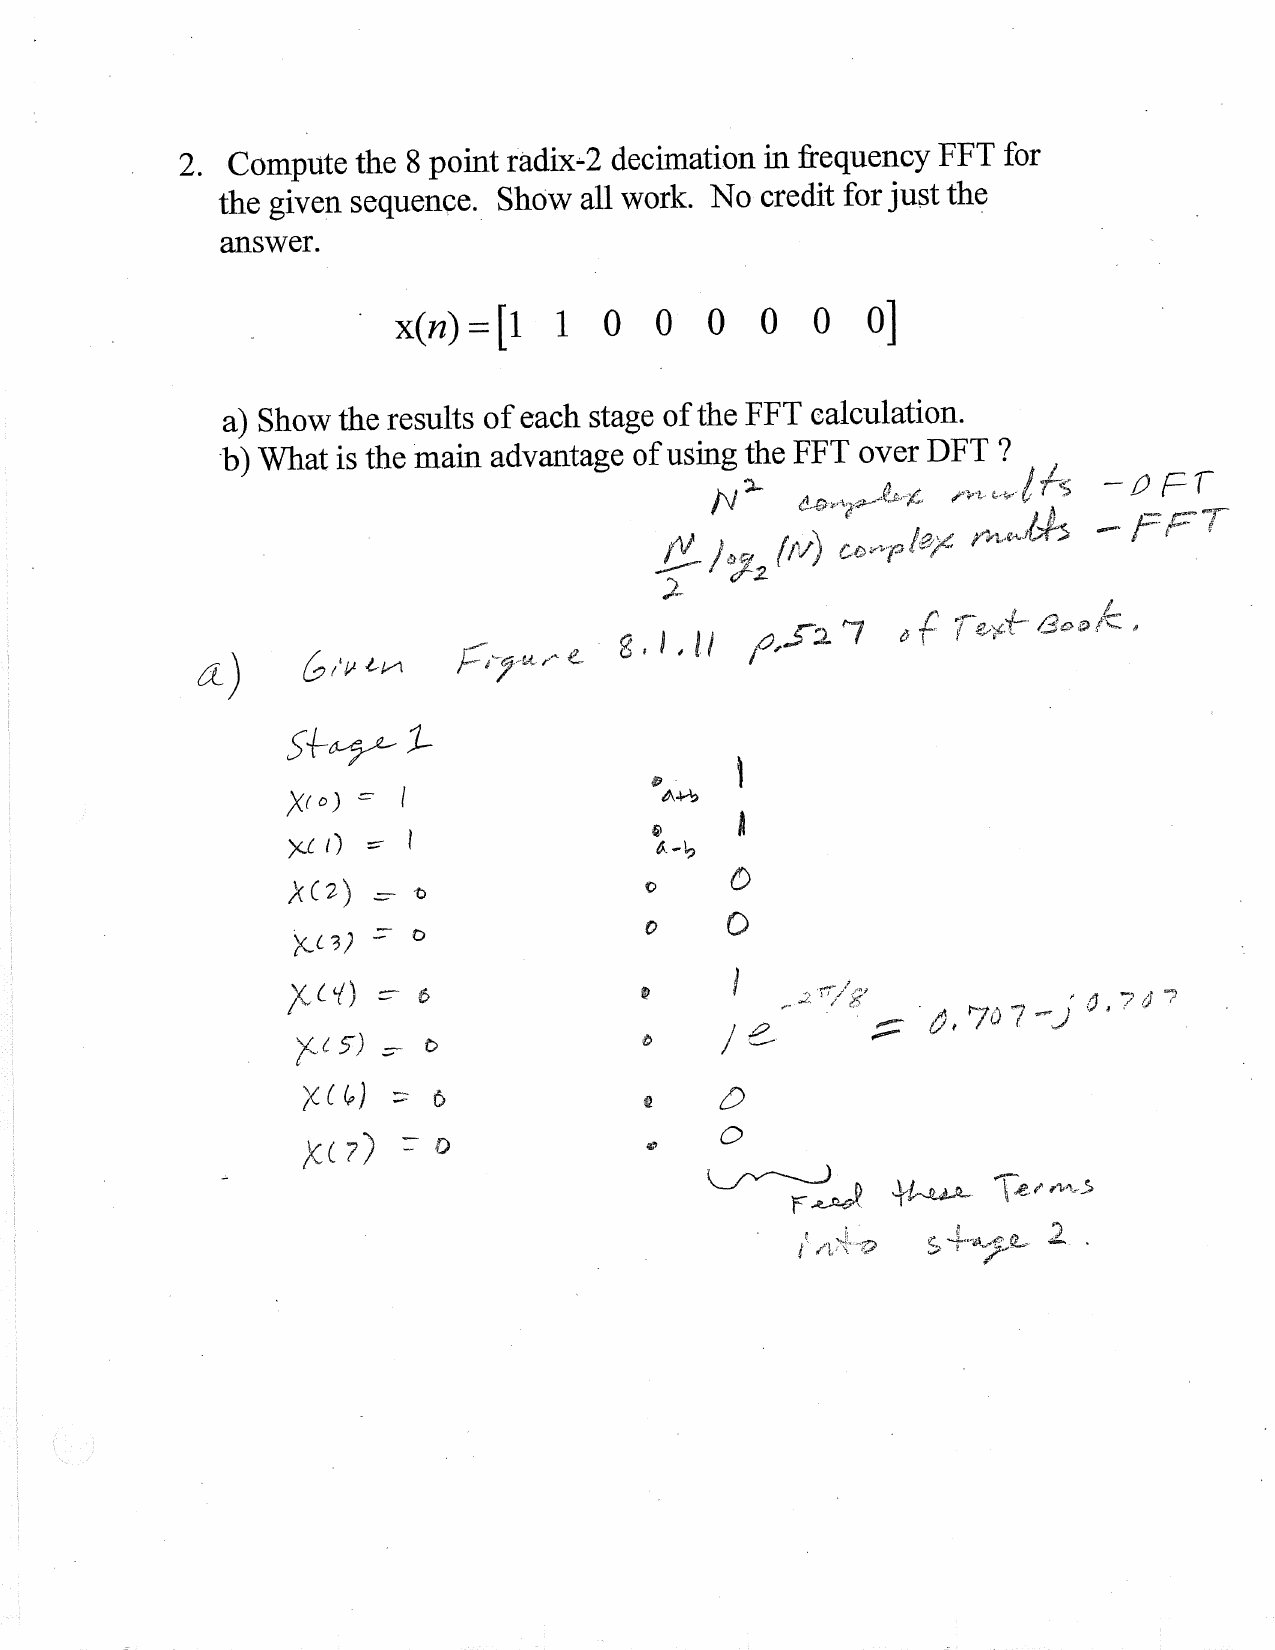 2. Compute the 8 point radix-2 decimation in frequency FFT for
the given sequence. Show all work. No credit for just the
answer.
x(n) = [1 1 0 0 0 0 0 0]
a) Show the results of each stage of the FFT calculation.
b) What is the main advantage of using the FFT over DFT ?
N² complex mults - DFT
N/2 log₂ (N) complex mults - FFT
a) Given Figure 8.1.11 p.527 of Text Book.
Stage 1
X(0) = 1 a+b 1
X(1) = 1 a-b 1
X(2) = 0 0
X(3) = 0 0
X(4) = 0 1
X(5) = 0 1e^-2π/8 = 0.707-j0.707
X(6) = 0 0
X(7) = 0 0
Feed these Terms
into stage 2.